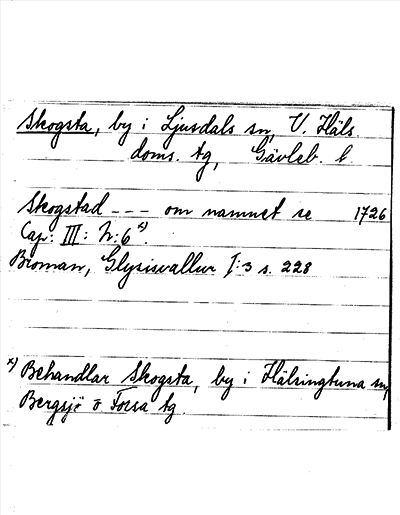 Skogsta, by i Ljusdals sn, V. Häls
doms. tg, Gävleb. l.
Skogstad --- om namnet se 1726
Cap: III: N:6 x).
Broman, Glysisvallur I:3 s. 228
x) Behandlar Skogsta, by i Hälsingtuna sn,
Bergsjö o Forsa tg.